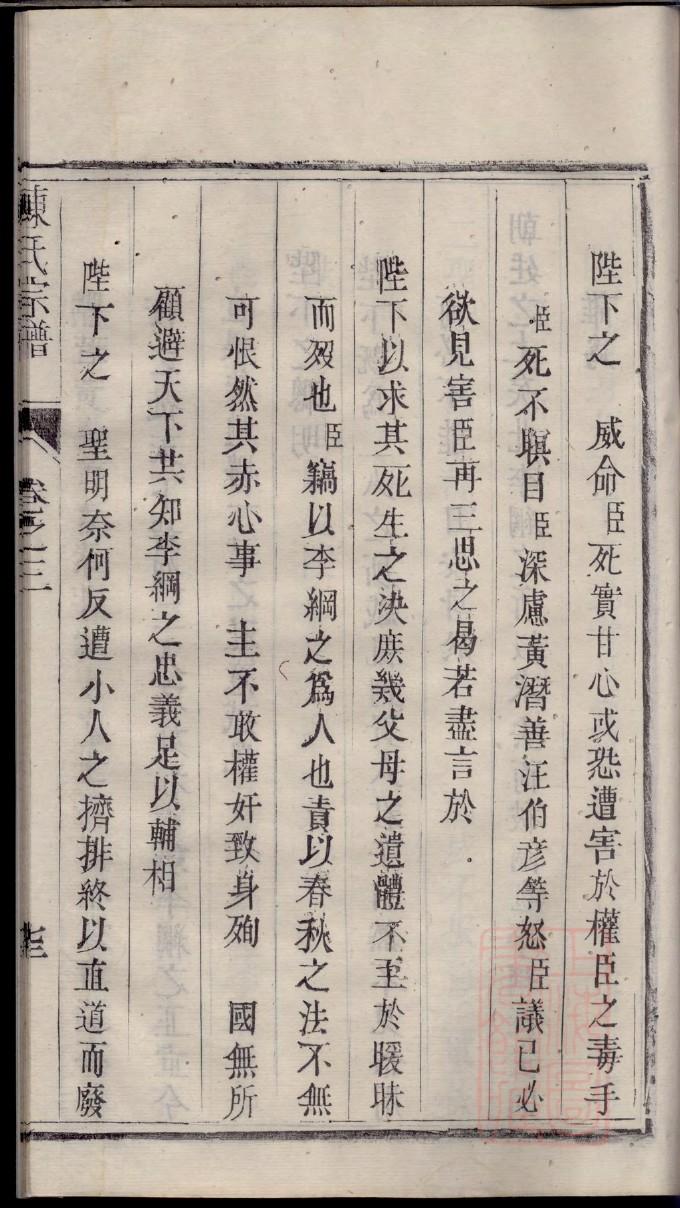 陛下之　威命臣死實甘心或恐遭害於權臣之毒手
臣死不瞑目臣深慮黃潛善汪伯彥等怒臣議已必
欲見害臣再三思之曷若盡言於
陛下以求其死生之決庶幾父母之遺體不至於暖昧
而歿也臣竊以李綱之爲人也責以春秋之法不無
可恨然其赤心事　主不敢權奸致身殉　國無所
顧避天下共知李綱之忠義足以輔相
陛下之　聖明奈何反遭小人之擠排終以直道而廢
陳氏宗譜　卷之三